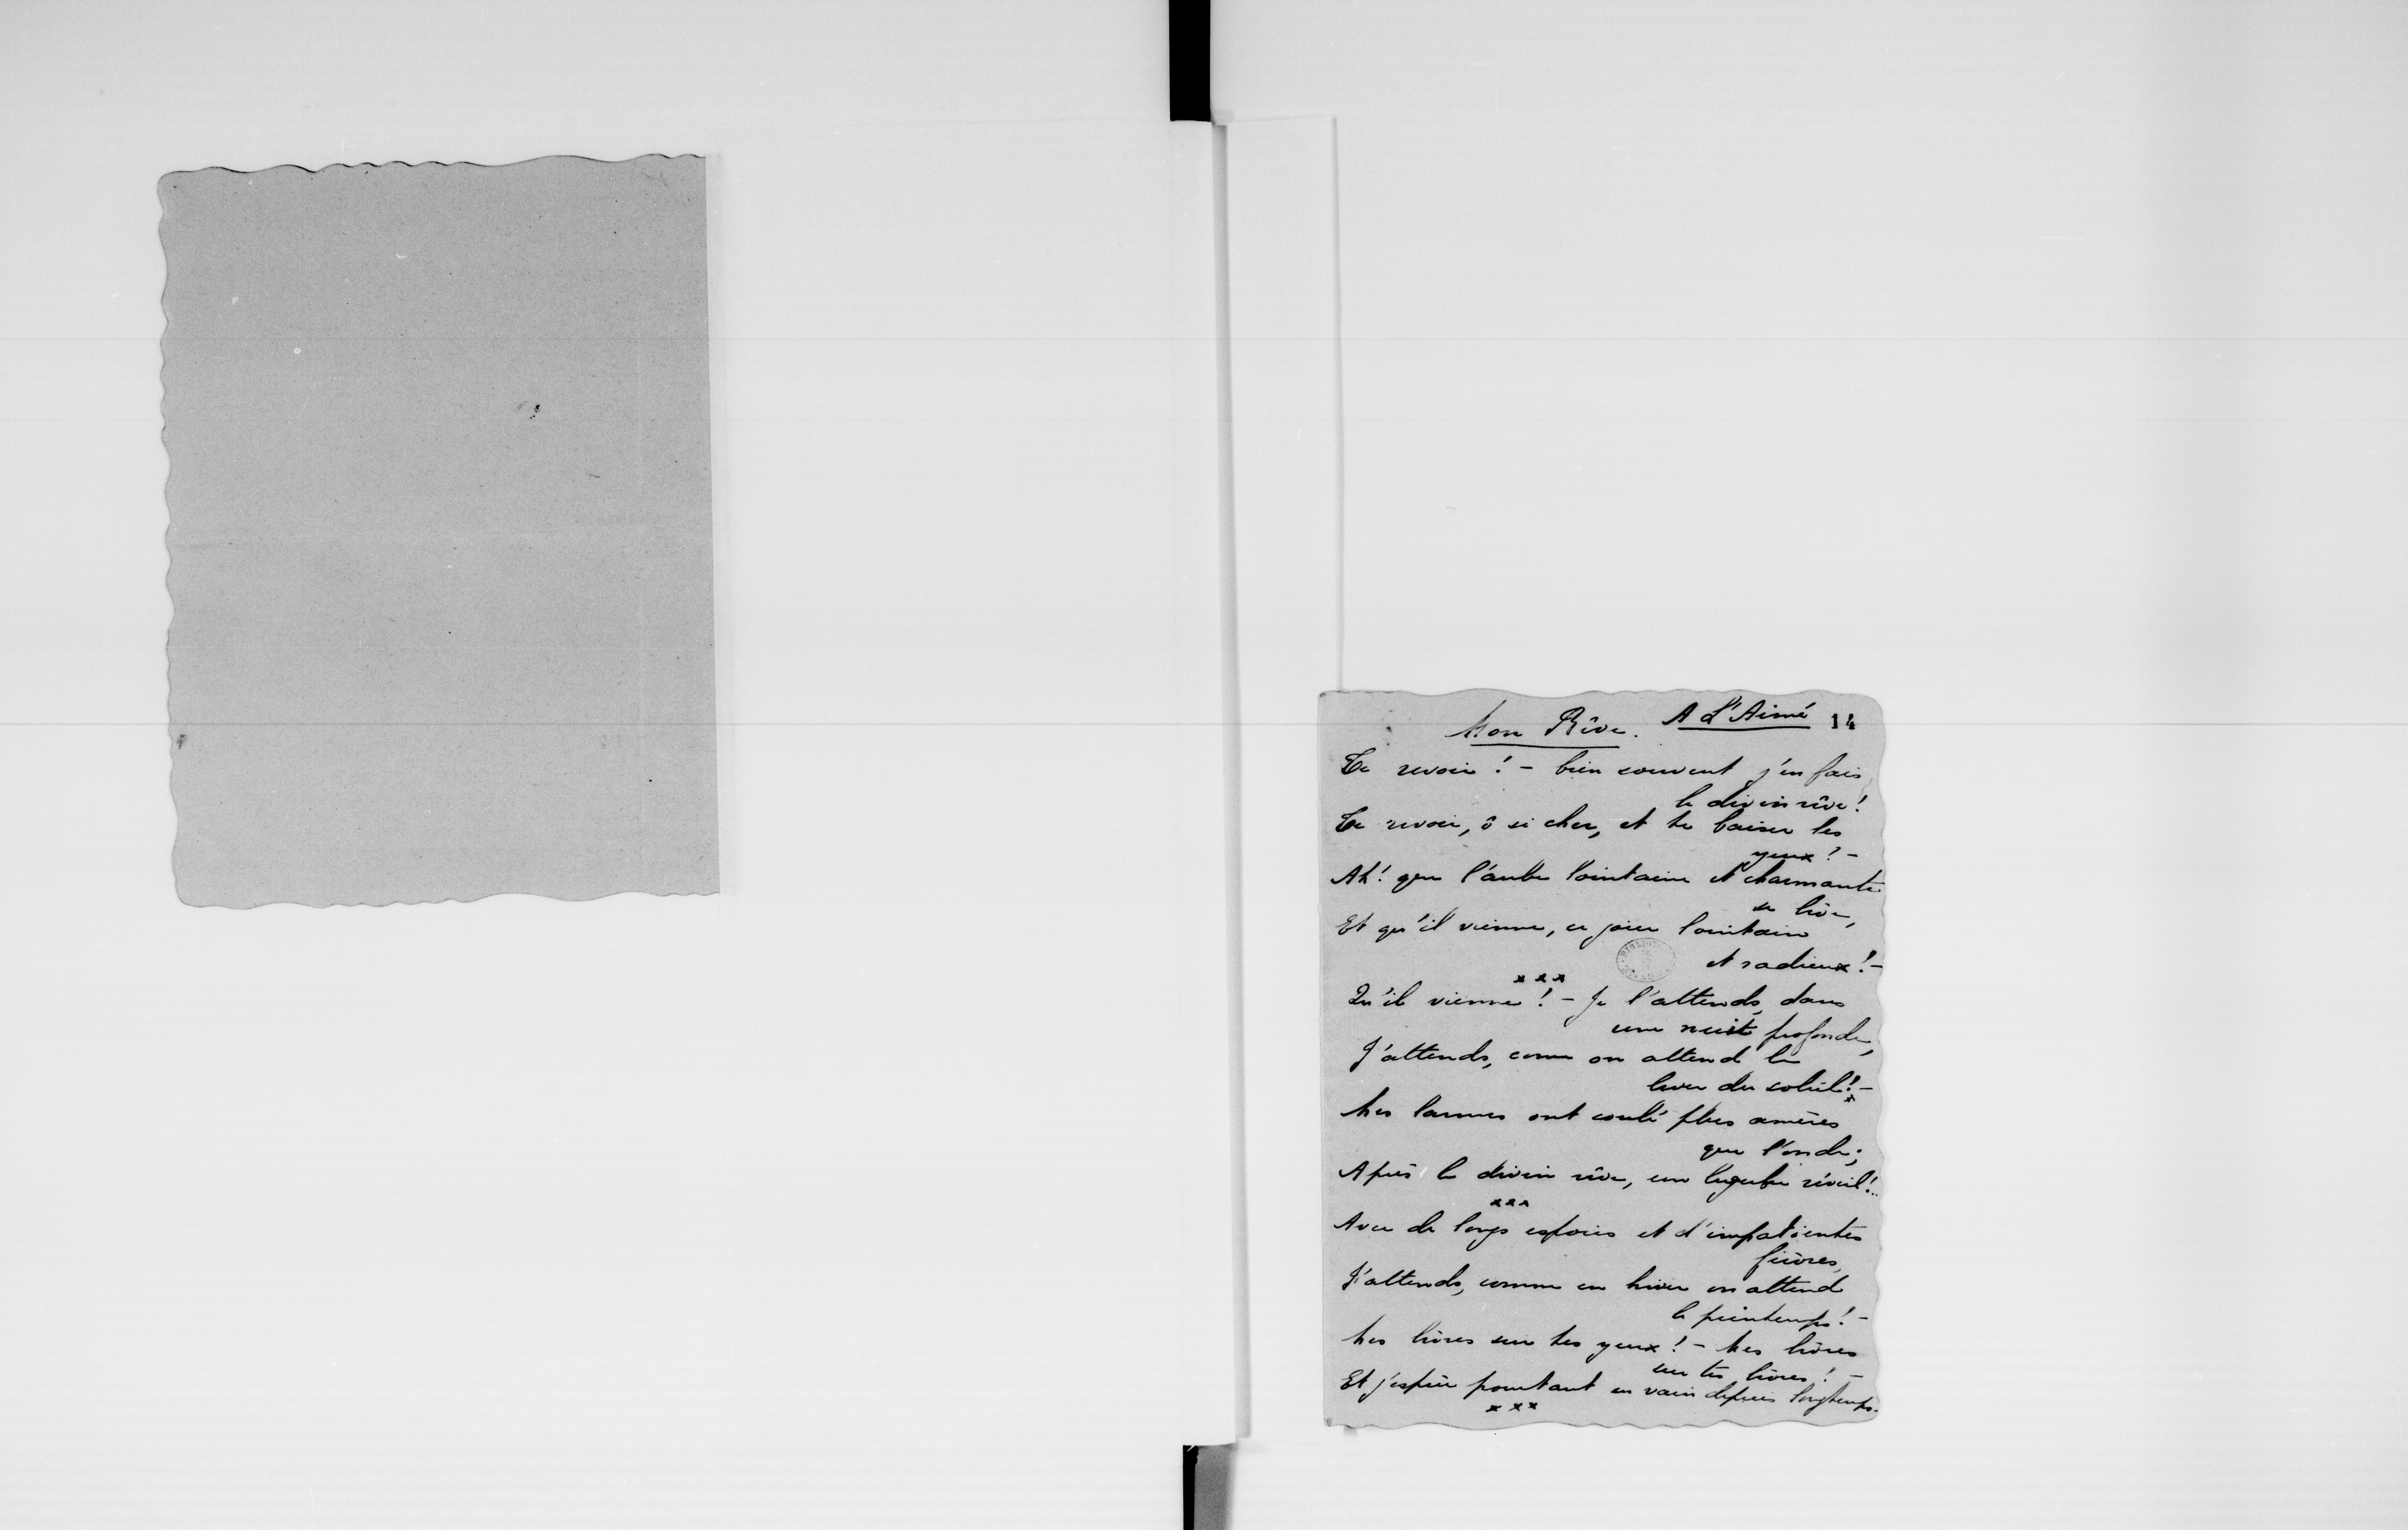 A L'Aimé 14
Mon Rêve.
Te revoir ! – bien souvent j'en fais
le divin rêve !
Te revoir, ô si cher, et te baiser les
yeux ! –
Ah ! que l'aube lointaine et charmante
se lève,
Et qu'il vienne, ce jour lointain
et radieux ! –
x x x
Qu'il vienne ! – Je l'attends, dans
une nuit profonde,
J'attends, comme on attend le
lever du soleil ! –
Mes larmes ont coulé plus amères
que l'onde ;
Après le divin rêve, un lugubre réveil !..
x x x
Avec de longs espoirs et d'impatientes
fièvres,
J'attends, comme en hiver on attend
le printemps ! –
Mes lèvres sur tes yeux ! – Mes lèvres
sur tes lèvres ! –
Et j'espère pourtant en vain depuis longtemps.
x x x